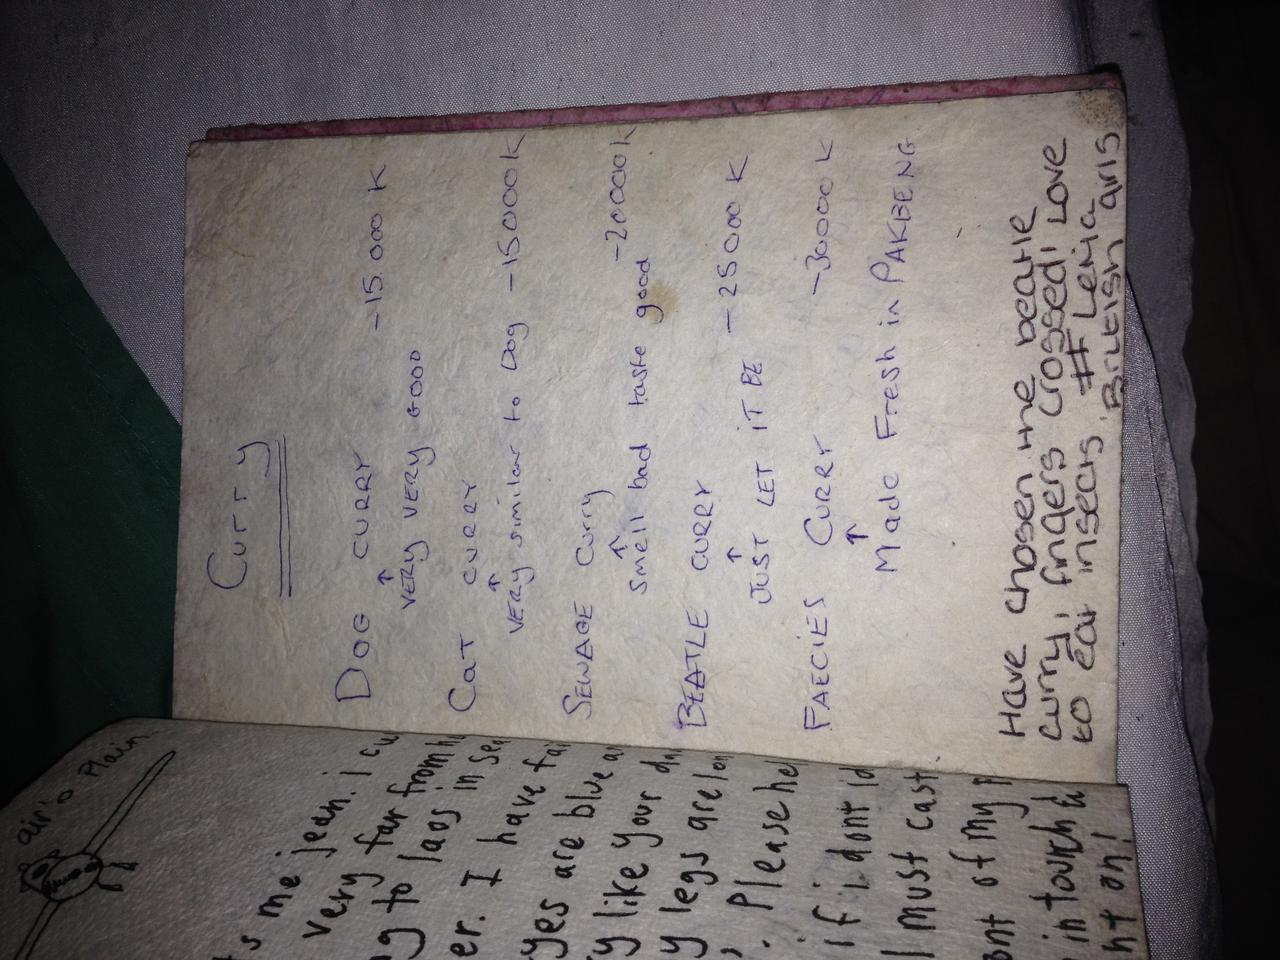 Curry
DOG CURRY -15.000 K
↑
VERY VERY GOOD
CaT CURRY
↑
VERY similar to Dog -15000K
SEWAGE Curry -20000K
↑
Smell bad taste good
BEATLE CURRY - 25000 K
↑
JUST LET iT BE
FAECIES CURRY -30000 K
↑
Made Fresh in PAKBENG
Have chosen the beatle
curry, fingers crossed! LOVE
to eat insects. # Leňa
British girls
air'o Plain.
s me jean. I cu
very far from h
g to laos in sea
er. I have fai
yes are blue a
y like your d
y legs are lon
. Please he
if i dont
I must cast
ont of my
in touch
nt on!